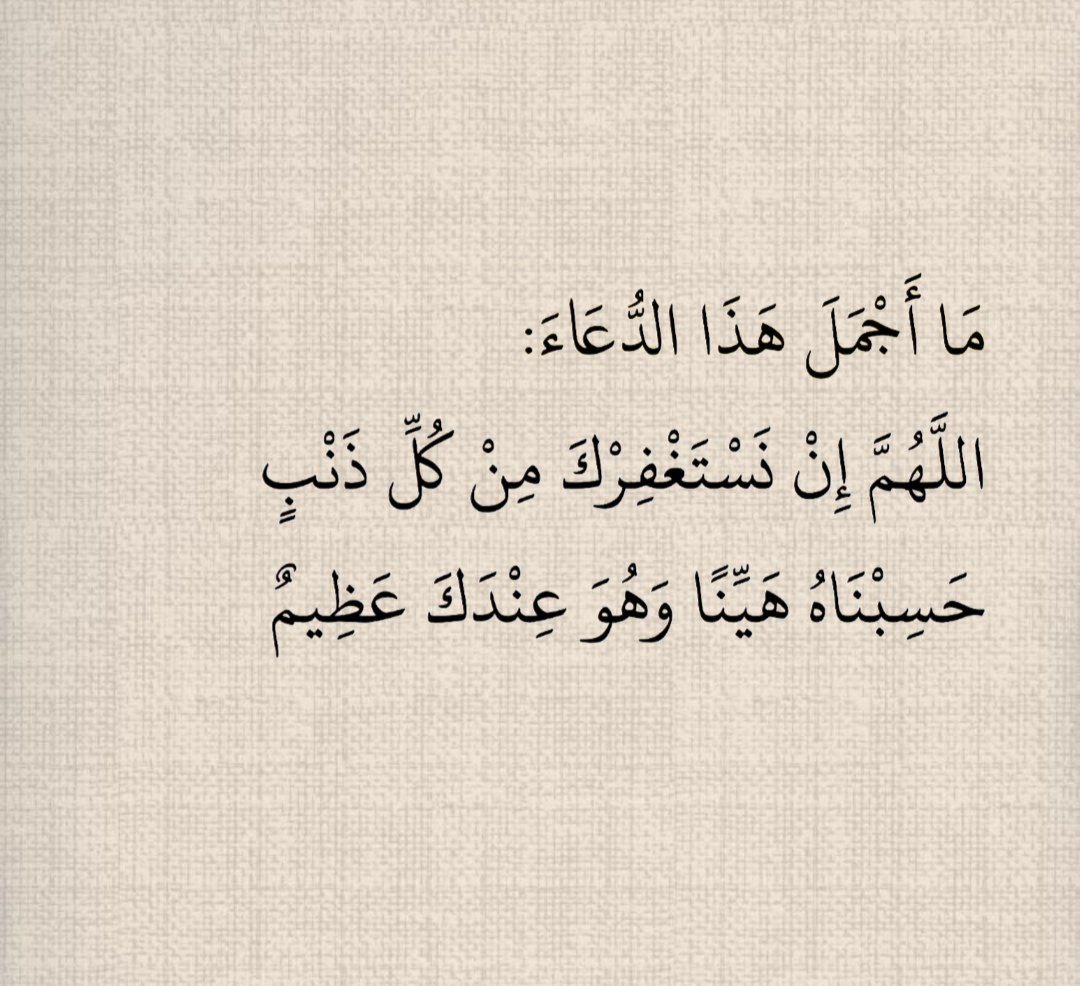 مَا أَجْمَلَ هَذَا الدُّعَاءَ:
اللَّهُمَّ إِنْ نَسْتَغْفِرْكَ مِنْ كُلِّ ذَنْبٍ
حَسِبْنَاهُ هَيِّنًا وَهُوَ عِنْدَكَ عَظِيمٌ